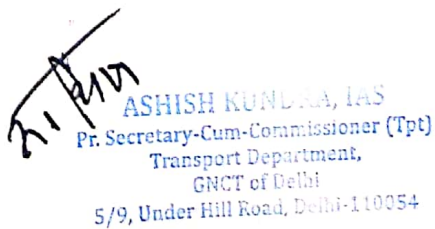 ASHISH KUNDRA, IAS
Pr. Secretary-Cum-Commissioner (Tpt)
Transport Department,
GNCT of Delhi
5/9, Under Hill Road, Delhi-110054